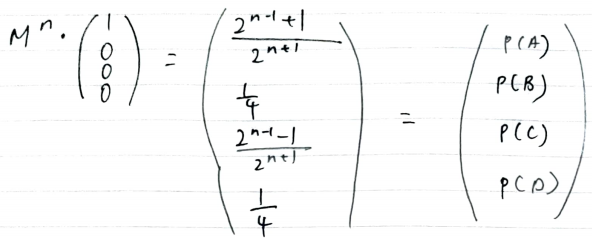 $M^n \cdot \begin{pmatrix} 1 \\ 0 \\ 0 \\ 0 \end{pmatrix} = \begin{pmatrix} \frac{2^{n-1}+1}{2^{n+1}} \\ \frac{1}{4} \\ \frac{2^{n-1}-1}{2^{n+1}} \\ \frac{1}{4} \end{pmatrix} = \begin{pmatrix} P(A) \\ P(B) \\ P(C) \\ P(D) \end{pmatrix}$